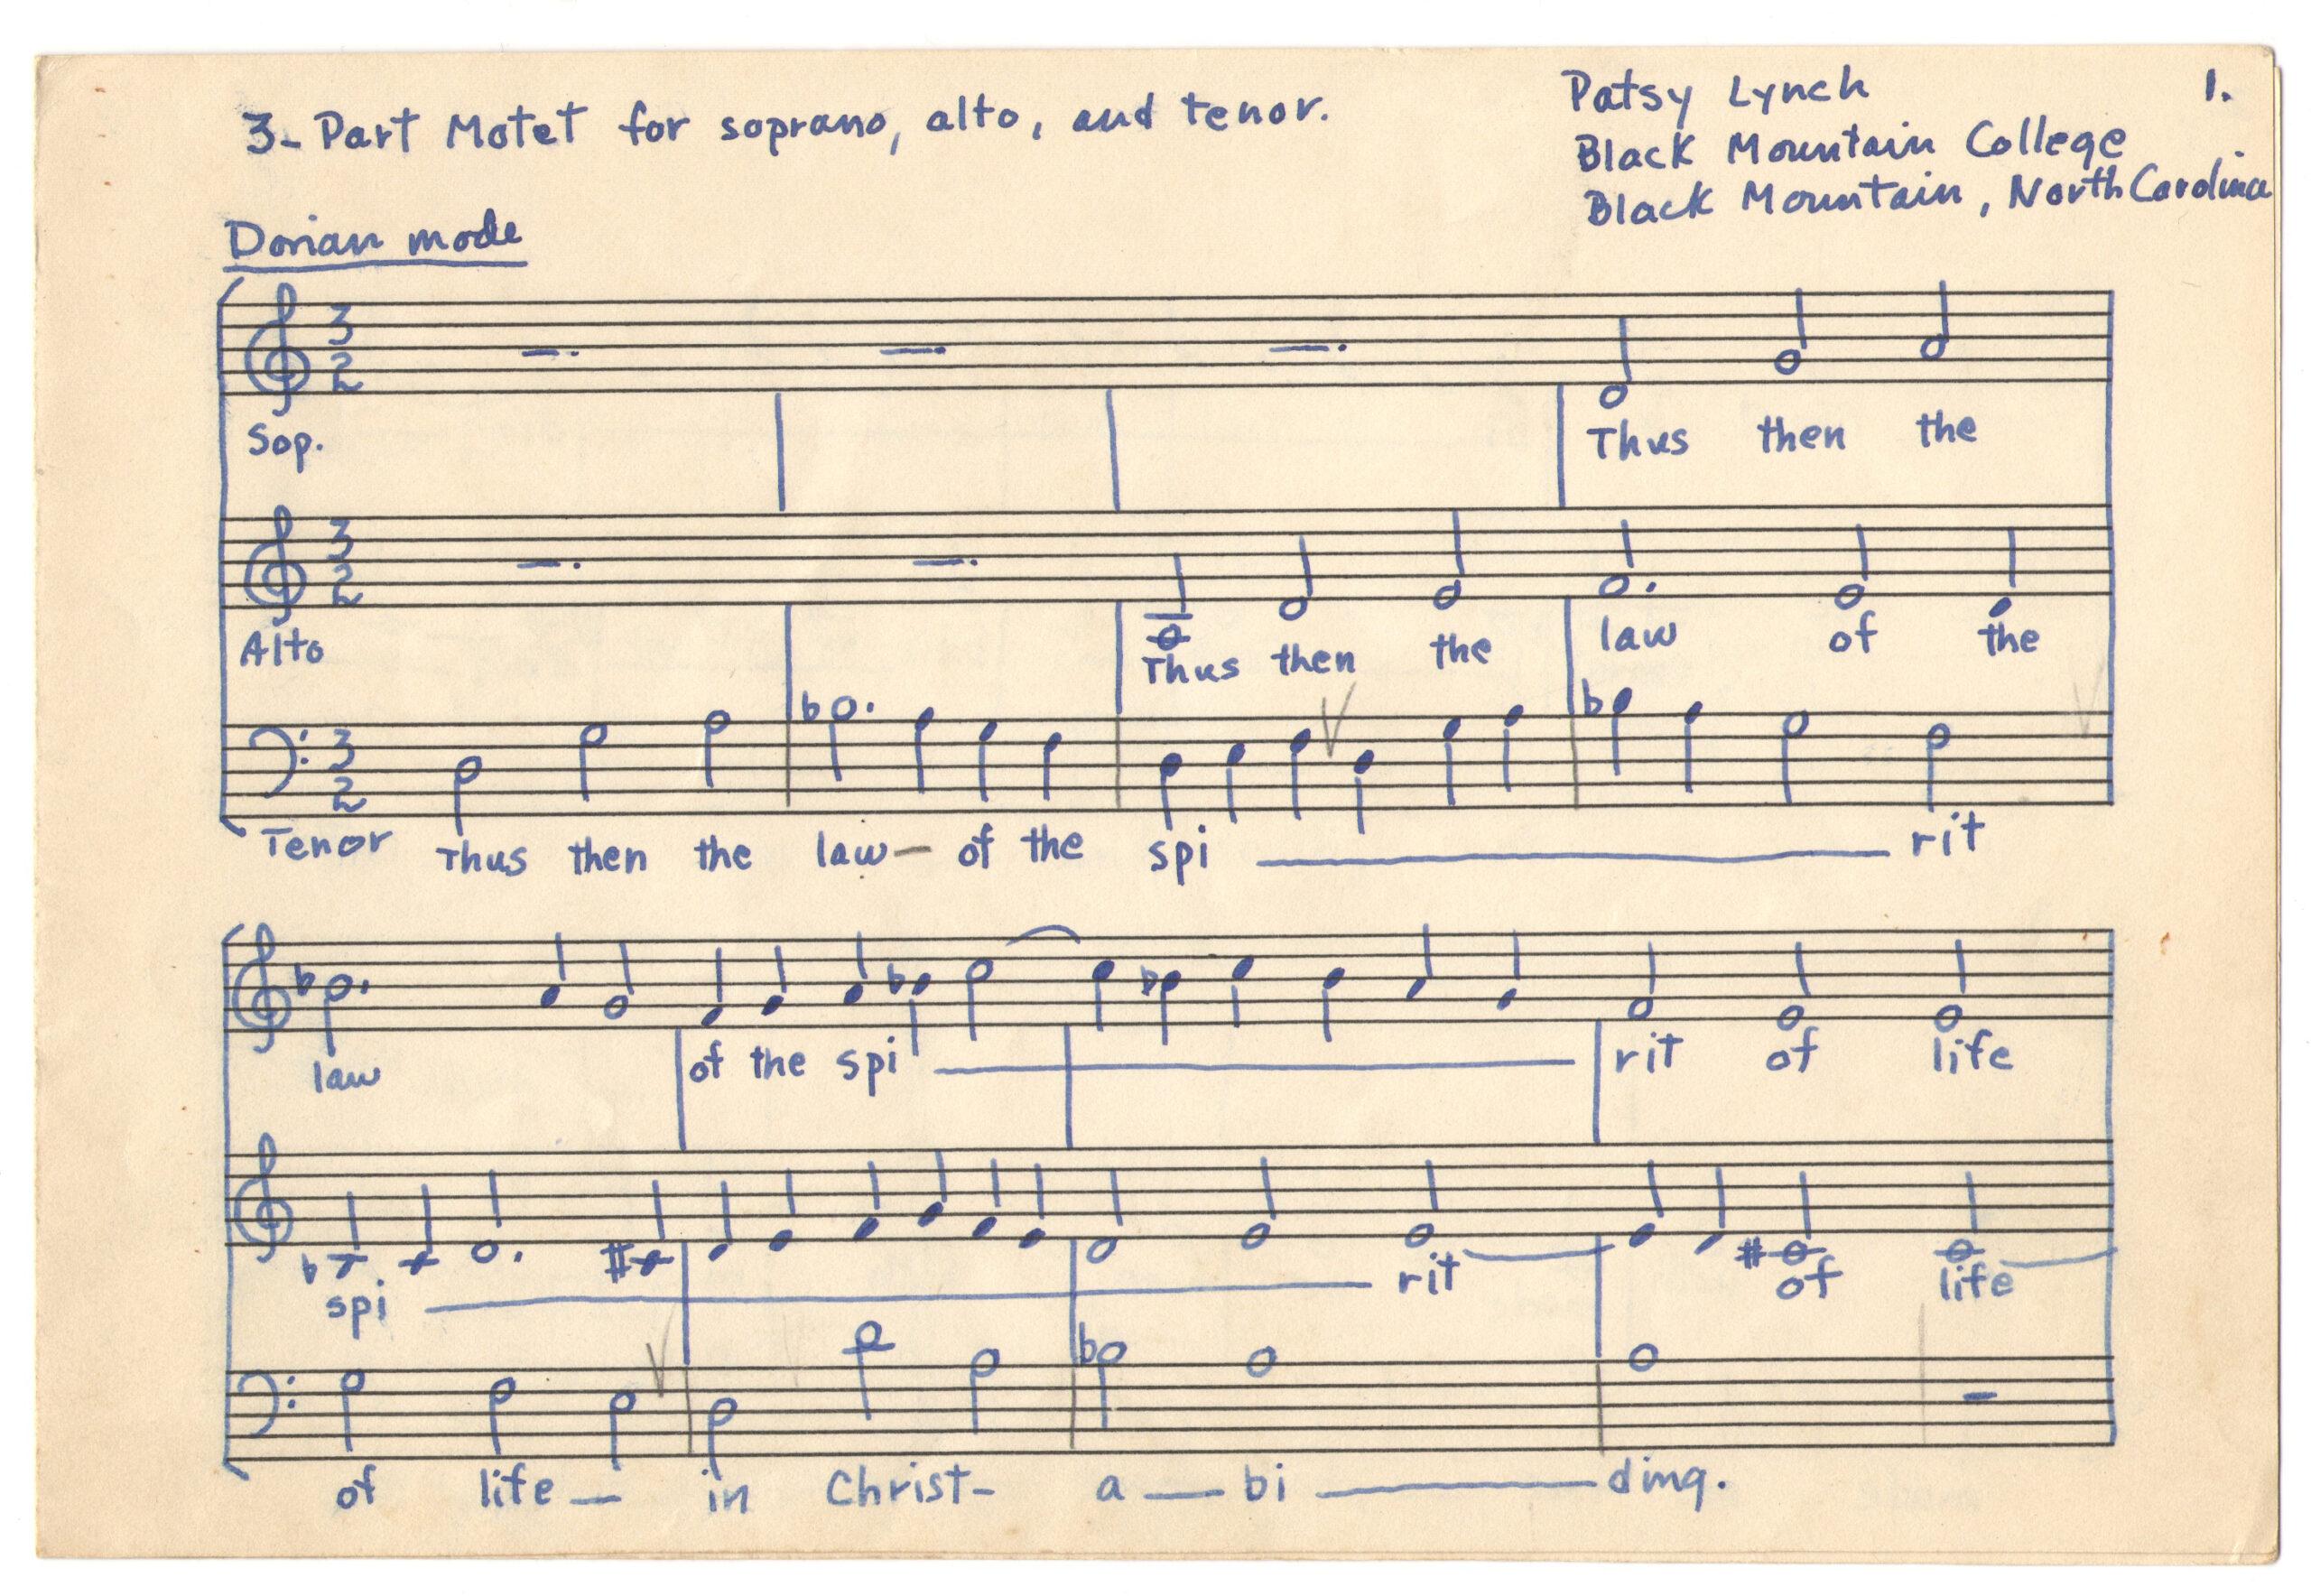 3-Part Motet for soprano, alto, and tenor.
Patsy Lynch
Black Mountain College
Black Mountain, North Carolina
1.
Dorian mode
3
2
Sop.
Thus then the
3
2
Alto
Thus then the law of the
3
2
Tenor Thus then the law— of the spi ——— rit
law of the spi ——— rit of life
spi ——— rit —— of life —
of life — in Christ- a — bi —— ding.